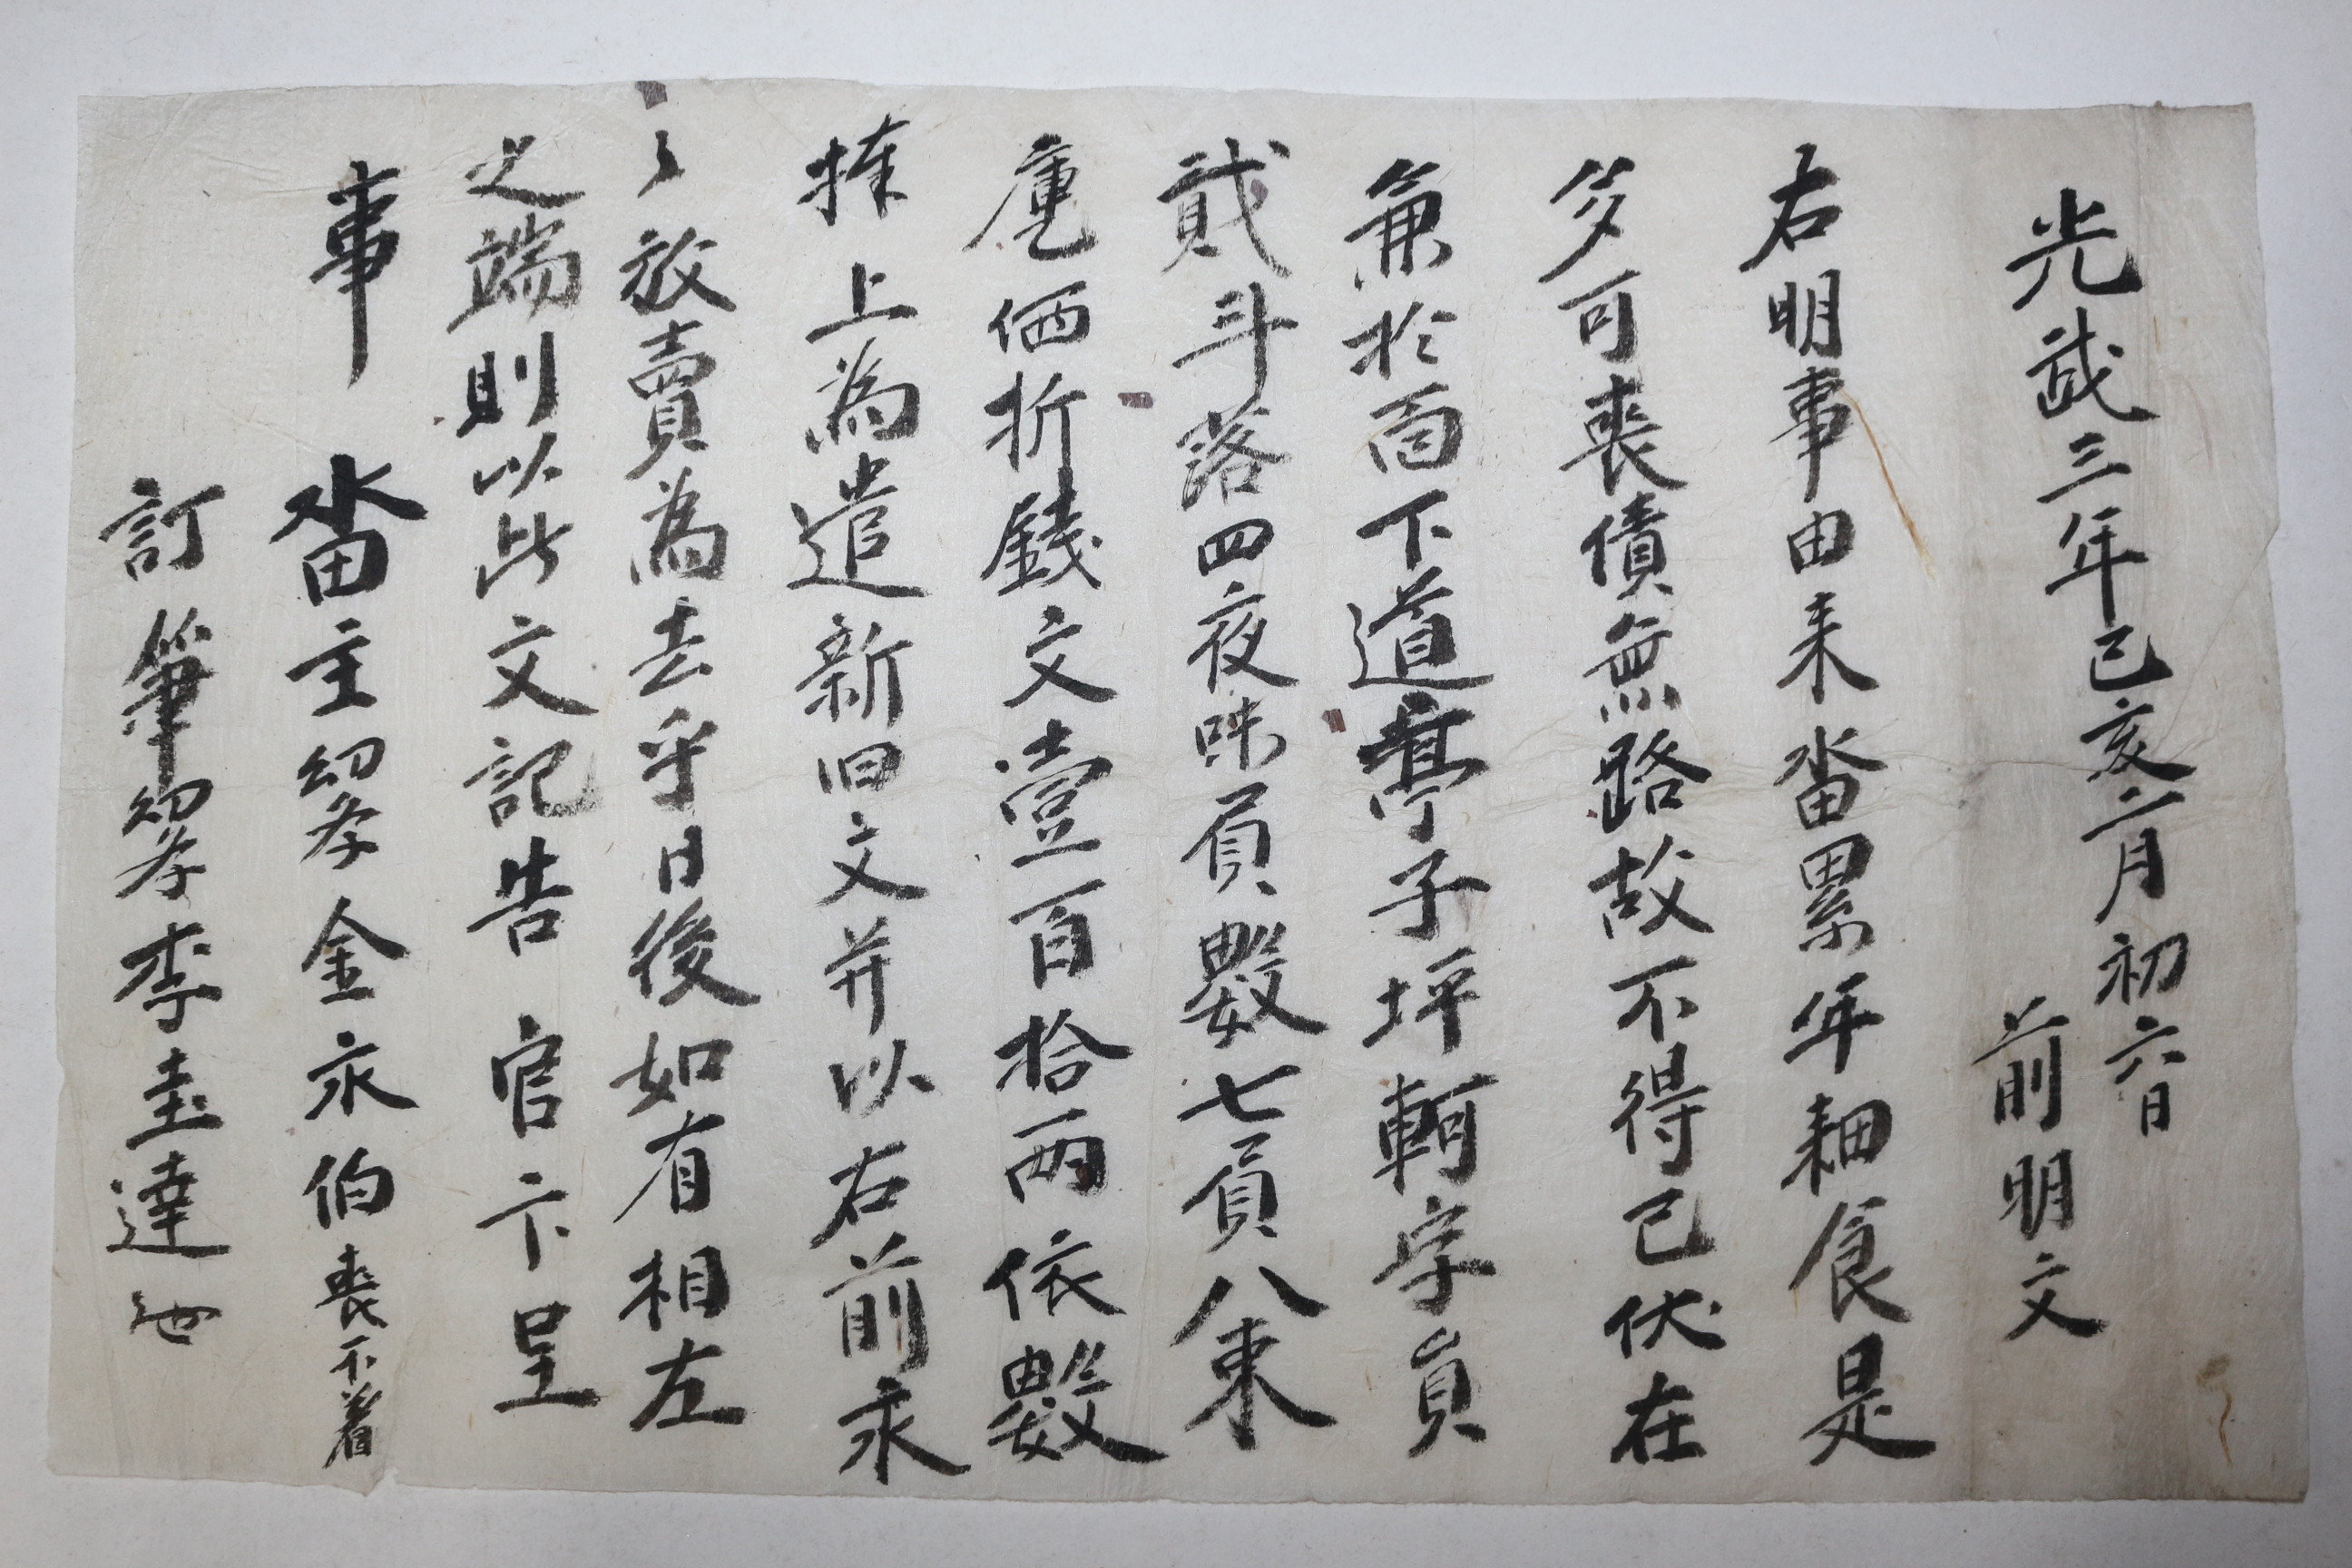 光武三年己亥二月初六日
前明文
右明事由来畓累年耕食是
多可喪債無路故不得已伏在
兼於面下道亭子坪軻字員
貳斗落四夜味員數七負八束
庫価折錢文壹百拾兩依數
捧上為遣新旧文并以右前永
〻放賣為去乎日後如有相左
之端則以此文記告官卞呈
事
畓主幼孝金永伯喪不着
訂筆幼孝李圭達